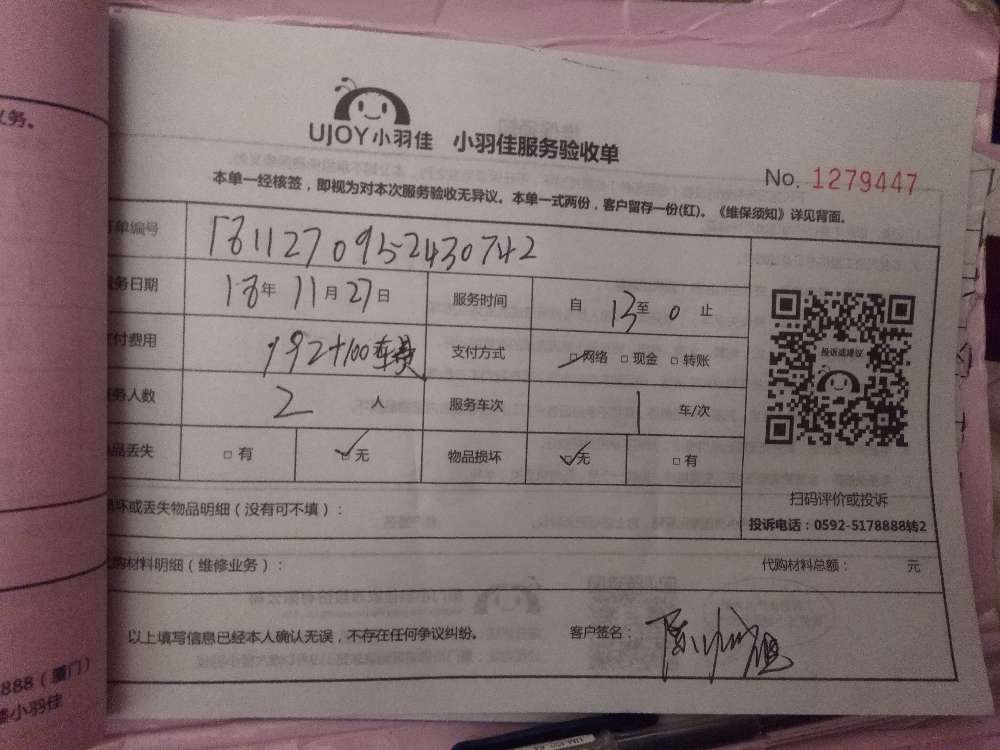 义务。
UJOY小羽佳 小羽佳服务验收单
No. 1279447
本单一经核签，即视为对本次服务验收无异议。本单一式两份，客户留存一份(红)。《维保须知》详见背面。
单编号 1811270952430742
务日期 18年 11月 27日 服务时间 自 13至 0 止
付费用 192+100车费 支付方式 □网络 □现金 □转账
务人数 2 人 服务车次 1 车/次
品丢失 □有 □无 物品损坏 □无 □有
投诉或建议
扫码评价或投诉
投诉电话：0592-5178888转2
坏或丢失物品明细（没有可不填）：
购材料明细（维修业务）： 代购材料总额： 元
以上填写信息已经本人确认无误，不存在任何争议纠纷。 客户签名：
888（厦门）
小羽佳